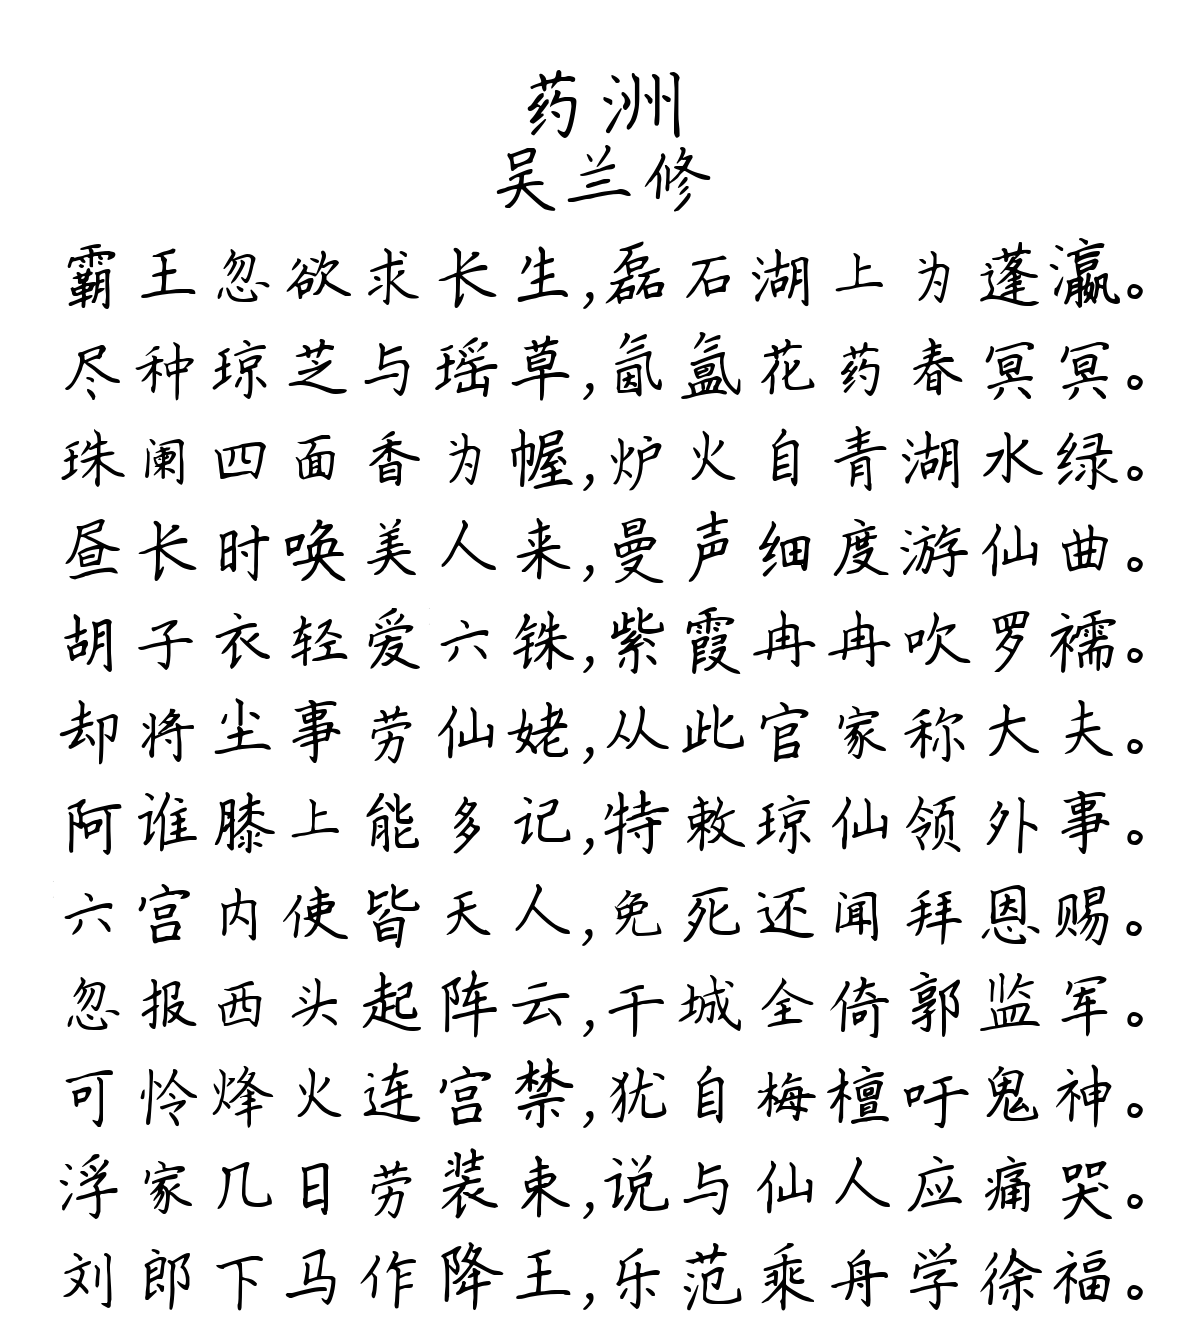 药洲
吴兰修
霸王忽欲求长生,磊石湖上为蓬瀛。
尽种琼芝与瑶草,氤氲花药春冥冥。
珠阑四面香为幄,炉火自青湖水绿。
昼长时唤美人来,曼声细度游仙曲。
胡子衣轻爱六铢,紫霞冉冉吹罗襦。
却将尘事劳仙姥,从此官家称大夫。
阿谁膝上能多记,特敕琼仙领外事。
六宫内使皆天人,免死还闻拜恩赐。
忽报西头起阵云,干城全倚郭监军。
可怜烽火连宫禁,犹自梅檀吁鬼神。
浮家几日劳装束,说与仙人应痛哭。
刘郎下马作降王,乐范乘舟学徐福。